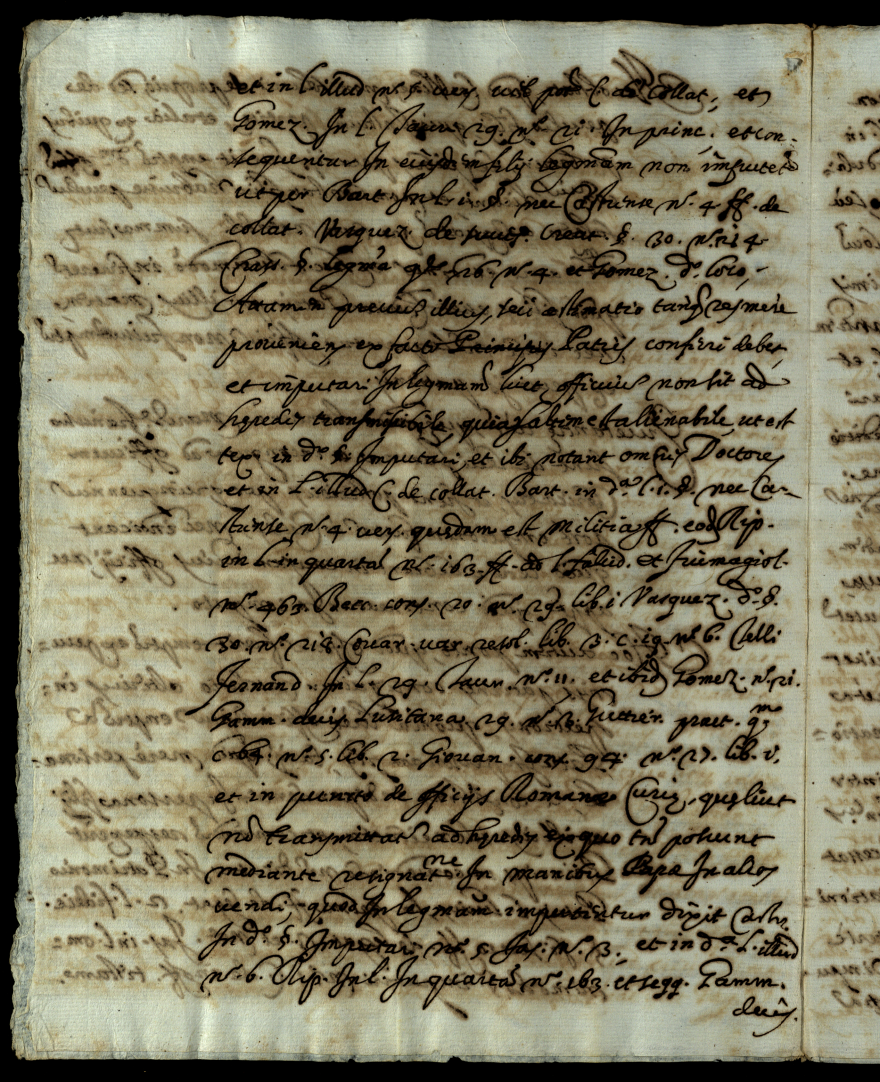 et in l. illud nᵒ. 5. vers. C. de Collat., et
Gomez. In l. Taur. 29. nᵒ. 21. In princ., et con-
sequenter In eiusdem filij legmam non imputetʳ
ut per Bart. In l. i. §. nec Castrense nᵒ. 4. ff. de
collat. Vasquez. de success. Creat. §. 30. nᵒ. 214
Grass. §. legma qᵒ. 26. nᵒ. 4. et Gomez. dᵒ. loco,
Attamen precium illius, seu aestimatio tanqᵐ res mere
proveniens ex facto Patris conferri debet,
et imputari In legmam licet officium non sit ad
hqredes transmissibile, quia saltim est alienabile, ut est
tex. in dᵒ. §. Imputari, et ibi notant omnes Doctores
et in l. illud C. de collat. Bart. in dᵃ. l. i. §. nec Ca-
strense nᵒ. 4. vers. quedam est militia ff. eod. Rip.
in l. in quartam nᵒ. 163. ff. ad l. falcid. et
nᵒ. 463. Becc. cons. 20. nᵒ. 29. lib. i Vasquez. dᵒ. §.
30. nᵒ. 218. Covar. var. resol. lib. 3. c. 19. nᵒ. 6. Telli
Fernand. In l. 29. Taur. nᵒ. 11. et ibid. Gomez. nᵒ. 21.
Gamm. decis. Lusitana. 29. nᵒ. 3. Gutier. pract.
c. 64. nᵒ. 5. lib. 2. Giovan. cons. 94. nᵒ. 27. lib. i,
et in puncto de officijs Romanae Curiq, quq licet
nō transmittatʳ ad hqredes tn̄ possunt
mediante resignatne. In manibus Papq In alios
vendi, quod In legmam imputetur dixit Castr.
In dᵒ. §. Imputari nᵒ. 5. Jas. nᵒ. 3., et in dᵃ. l. illud
nᵒ. 6. Rip. In l. In quartam nᵒ. 163. et seqq. Gamm.
decis.